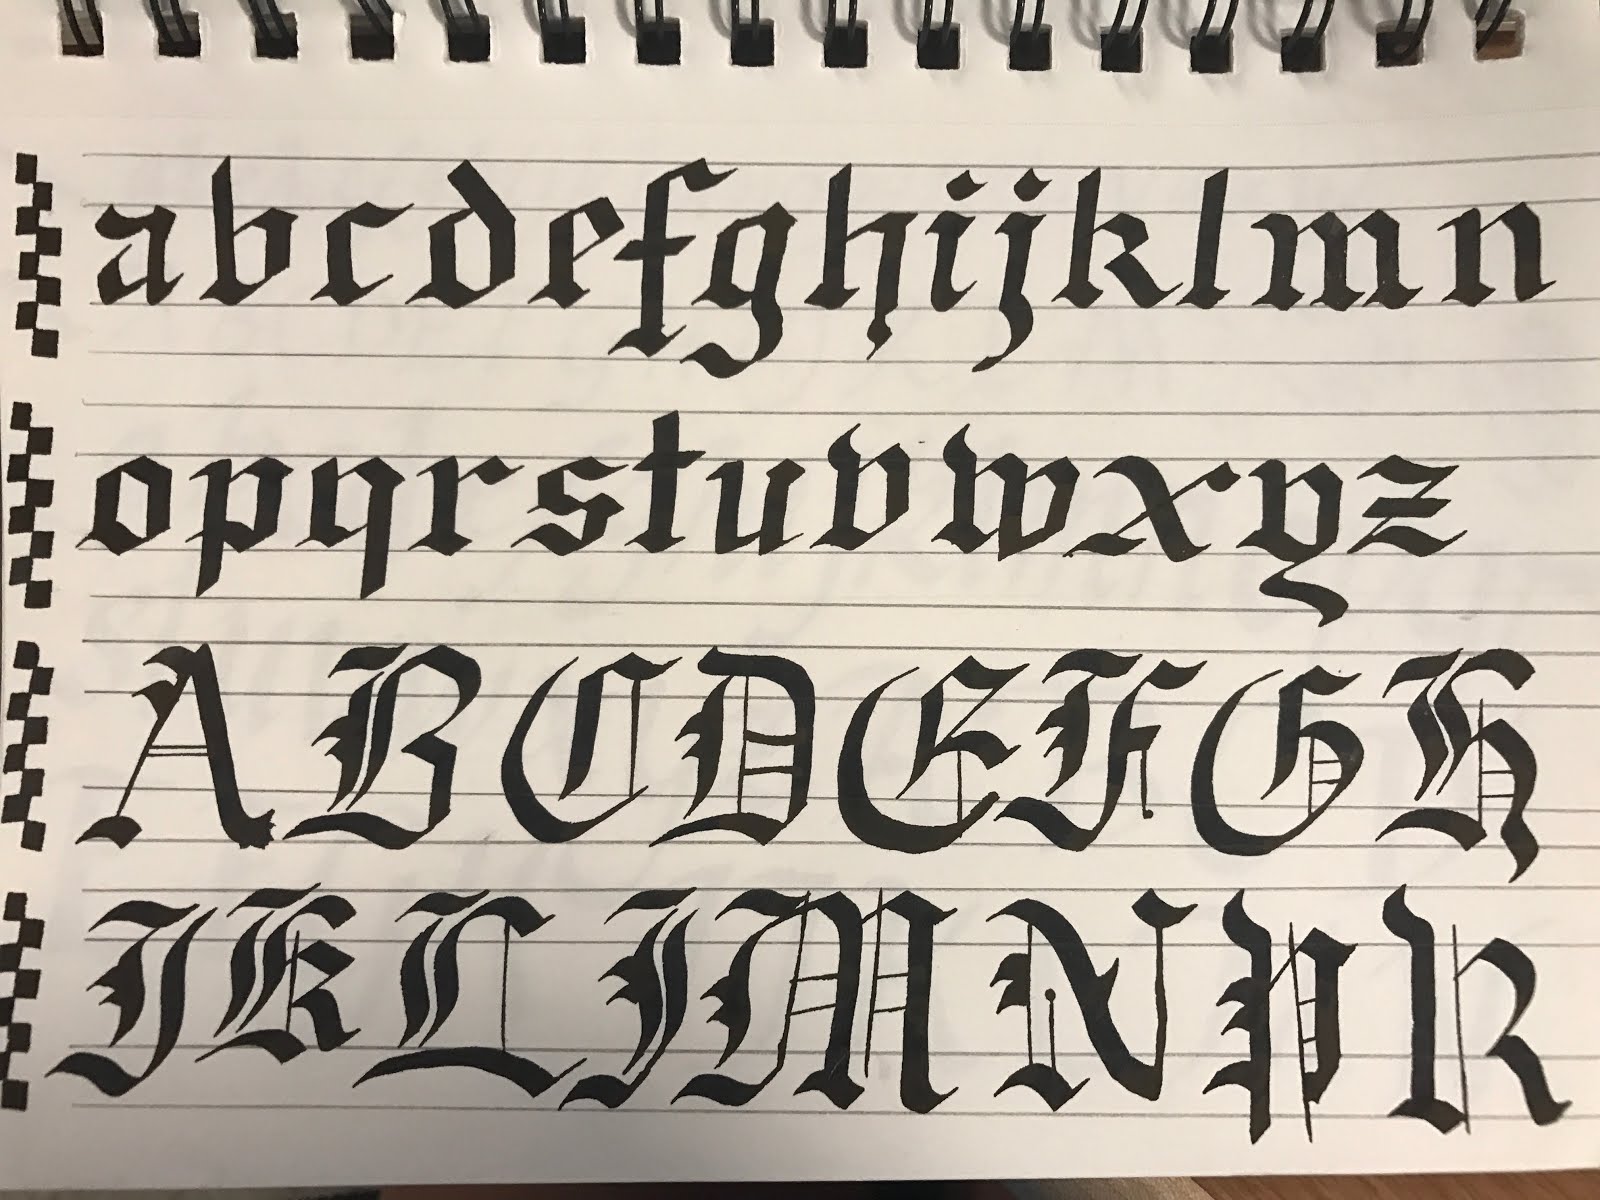 abcdefghijklmn
opqrstuvwxyz
ABCDEFGH
JKLIMNPR